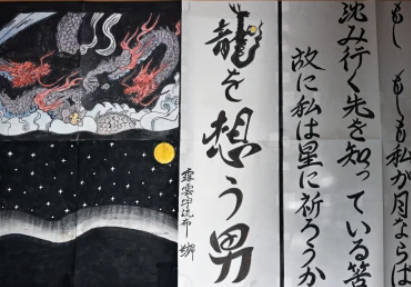 もし もしも私が月ならば
沈み行く先を知っている筈
故に私は星に祈ろうか
龍を想う男